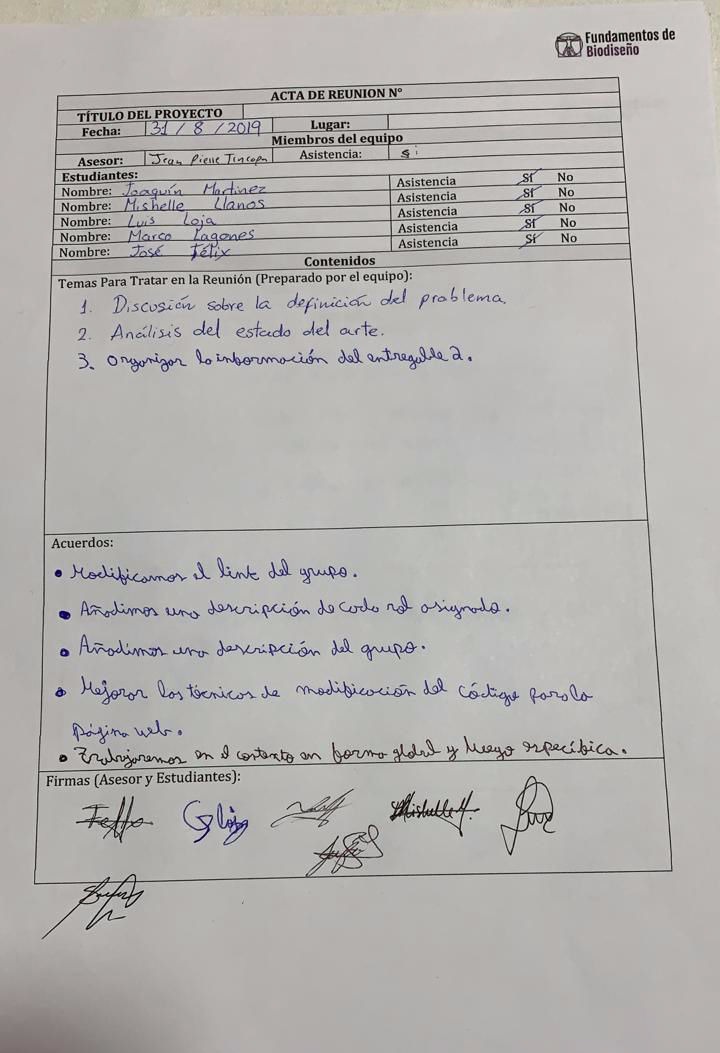 Fundamentos de
Biodiseño
ACTA DE REUNION N°
TÍTULO DEL PROYECTO
Fecha: 31 / 8 / 2019 Lugar:
Miembros del equipo
Asesor: Jean Pierre Tincopa Asistencia: si
Estudiantes:
Nombre: Joaquín Martinez Asistencia Sí No
Nombre: Mishelle Llanos Asistencia Sí No
Nombre: Luis Loja Asistencia Sí No
Nombre: Marco Lagones Asistencia Sí No
Nombre: José Félix Asistencia Sí No
Contenidos
Temas Para Tratar en la Reunión (Preparado por el equipo):
1. Discusión sobre la definición del problema.
2. Análisis del estado del arte.
3. Organizar la información del entregable 2.
Acuerdos:
• Modificamos el link del grupo.
• Añadimos una descripción de cada rol asignado.
• Añadimos una descripción del grupo.
• Mejorar las técnicas de modificación del código para la
página web.
• Trabajaremos en el contexto en forma global y luego específica.
Firmas (Asesor y Estudiantes):
Mishelle